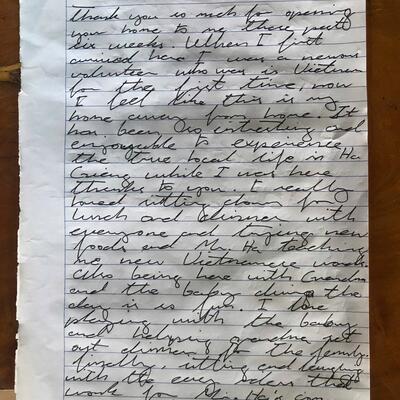 thank you so much for opening
your home to me these past
six weeks. When I first
arrived here I was a nervous
volunteer who was in Vietnam
for the first time, now
I feel like this is my
home away from home. It
has been so interesting and
enjoyable to experience
the true local life in Ha
Giang while I was here
thanks to you. I really
loved sitting down for
lunch and dinner with
everyone and trying new
foods and Ms Ha teaching
me new Vietnamese words.
Also being here with Grandma
and the baby during the
day is so fun. I love
playing with the baby
and helping grandma get
out dinner for the family.
Finally, sitting and laughing
with the easy riders that
work for